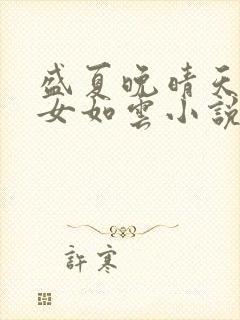 盛夏晚晴天
女如雲小說
許寒